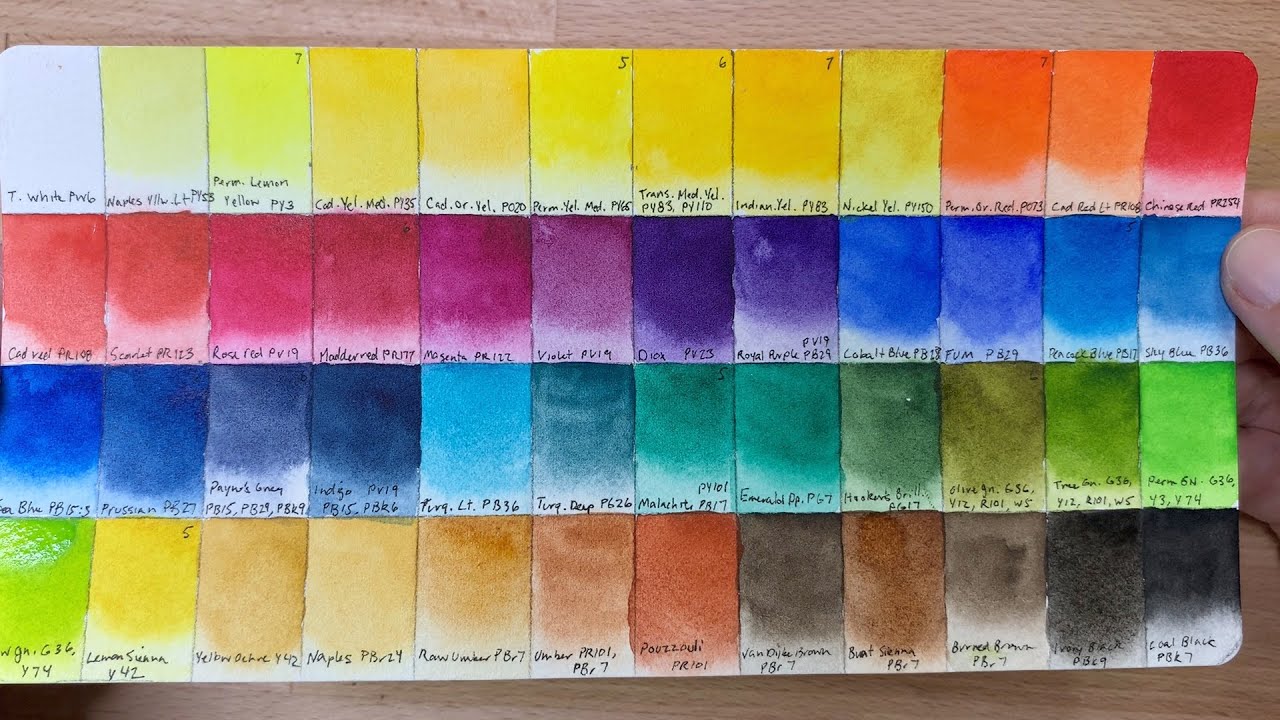 7
5
6
7
7
T. White PW6
Naples Yllw. Lt PY53
Perm. Lemon
Yellow PY3
Cad. Yel. Med. PY35
Cad. Or. Yel. PO20
Perm. Yel. Med. PY65
Trans. Med. Yel.
PY83, PY110
Indian. Yel. PY83
Nickel Yel. PY150
Perm. Or. Red. PO73
Cad Red Lt PR108
Chinese Red PR254
Cad red PR108
Scarlet PR123
Rose red PV19
Madder red PR177
Magenta PR122
Violet PV19
Diox PV23
PV19
Royal Purple PB29
Cobalt Blue PB28
FUM PB29
Peacock Blue PB17
Sky Blue PB36
5
Blue PB15:3
Prussian PB27
Payne's Grey
PB15, PB29, PBk9
Indigo PV19
PB15, PBk6
Turq. Lt. PB36
Turq. Deep PG26
PY101
Malachite PB17
Emerald Dp. PG7
Hooker's Brill.
PG17
Olive gn. G36,
Y12, R101, W5
Tree Gn. G36,
Y12, R101, W5
Perm Gn. G36,
Y3, Y74
5
gn. G36,
Y74
Lemon Sienna
Y42
Yellow Ochre Y42
Naples PBr24
Raw Umber PBr7
Umber PR101,
PBr7
Pouzzouli
PR101
Van Dijke Brown
PBr7
Burnt Sienna
PBr7
Burned Brown
PBr7
Ivory Black
PBk9
Coal Black
PBk7